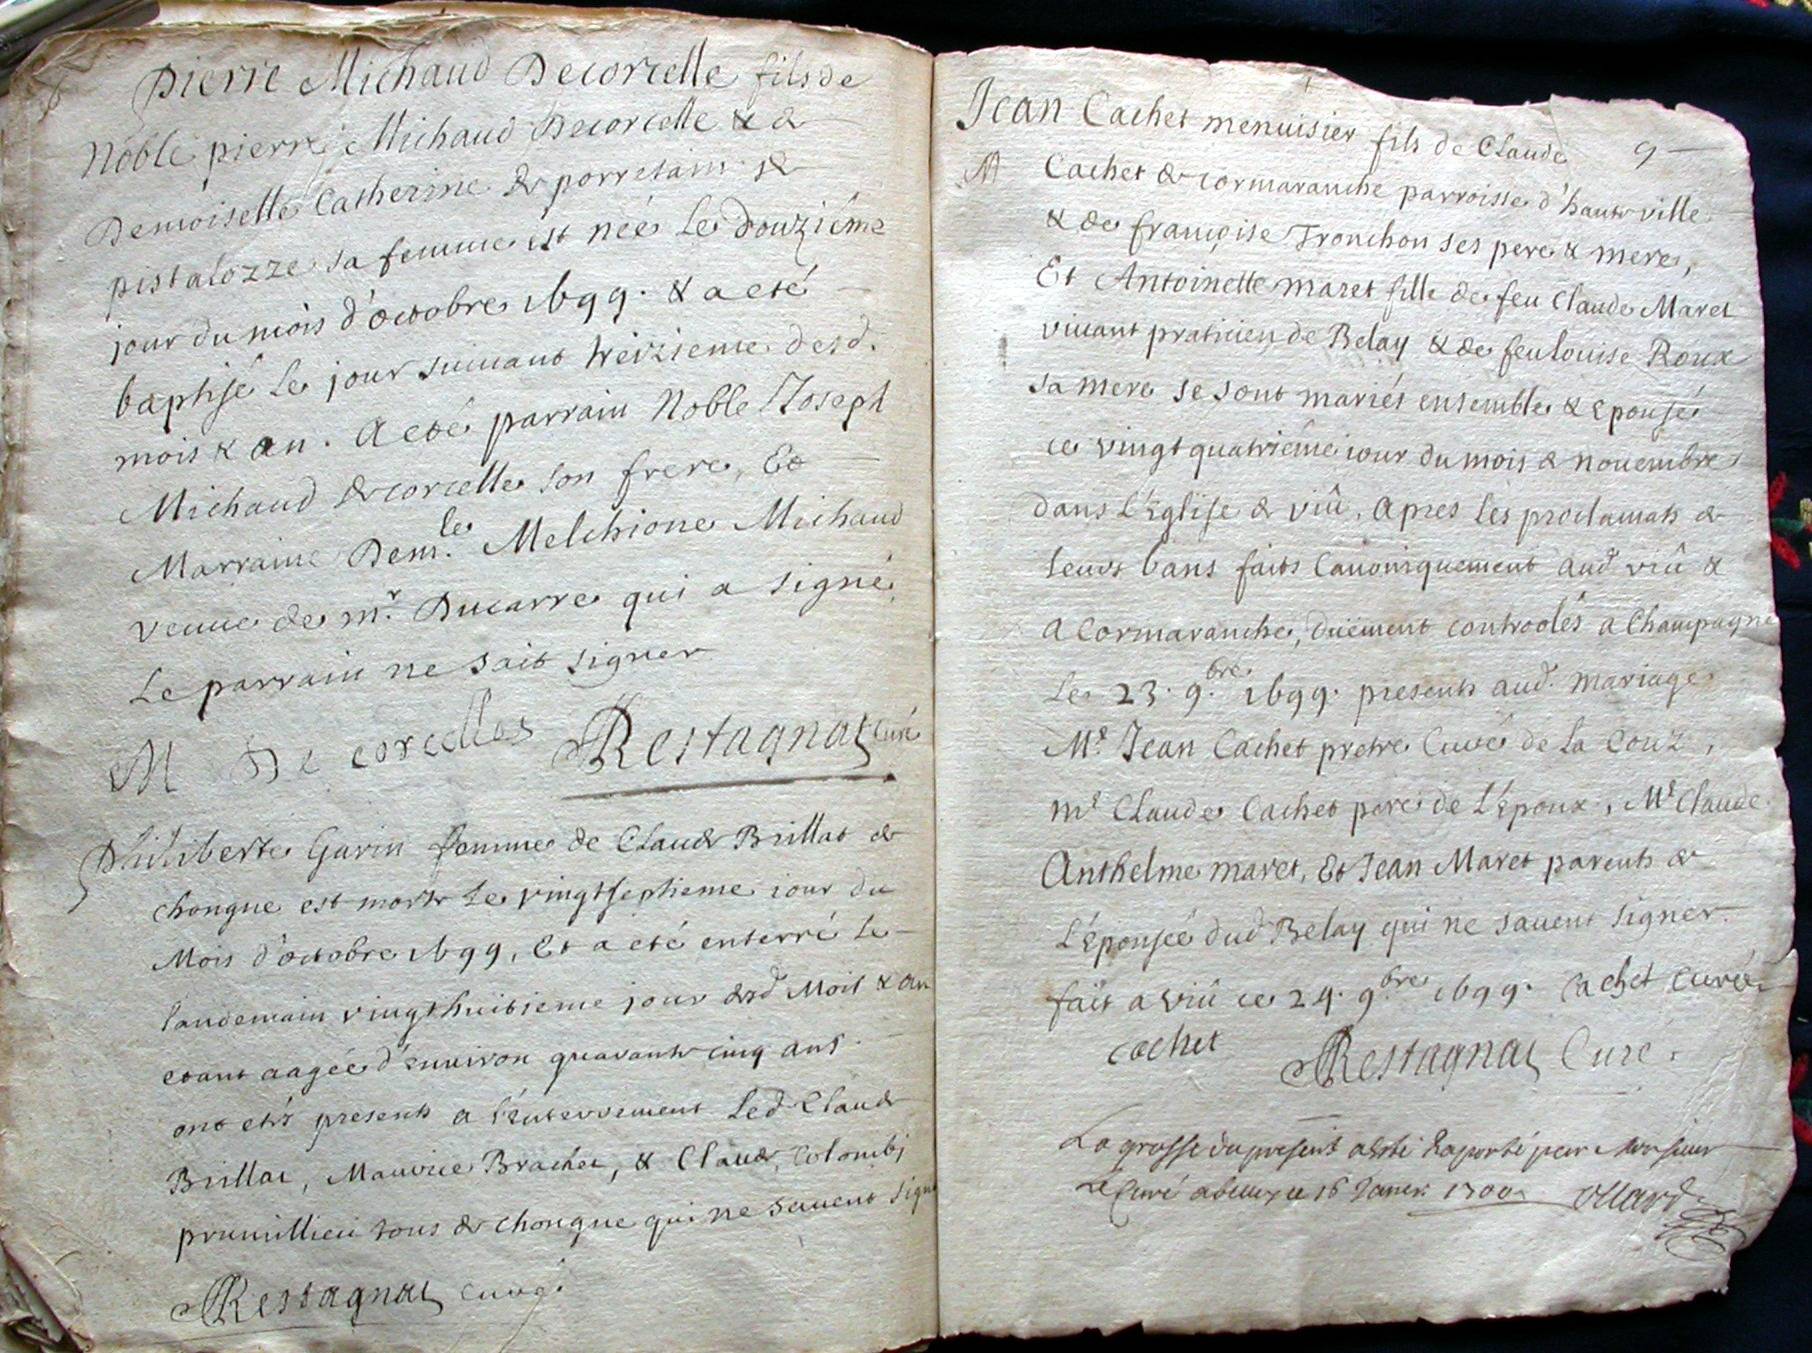 Pierre Michaud Decorcelle fils de
Noble pierre Michaud Decorcelle & de
Demoiselle Catherine de porretain de
pistalozze sa femme est née le douziéme
jour du mois d'octobre 1699. & a eté
baptisé le jour suivant treizieme desd.
mois & an. A eté parrain Noble Joseph
Michaud de corcelle son frere, Et
Marraine Dem.le Melchione Michaud
veuve de mr. Ducarre qui a signé,
Le parrain ne sait signer
M De corcelles Restagnat Curé
Philiberte Garin femme de Claude Brillat de
chongne est morte Le vingtseptieme iour du
Mois d'octobre 1699, Et a eté enterré le
landemain vingthuitieme jour desd. Mois & an
etant aagée d'environ quarante cinq ans.
ont etés presents a l'enterrement Led. Claude
Brillat, Maurice Brachet, & Claude Colombi
prumillieu tous de chongne qui ne savent signe
Restagnat curé
9
Jean Cachet menuisier fils de Claude
M Cachet de cormaranche parroisse d'hauteville
& de françoise Tronchon ses pere & mere,
Et Antoinette maret fille de feu Claude Maret
vivant praticien de Belay & de feu louise Roux
sa mere se sont mariés ensemble & Epousé
ce vingt quatriéme iour du mois de novembre
dans l'Eglise de viû. Apres les proclamats de
leurs bans faits Canoniquement aud. viû &
a Cormaranche, duëment controolés a Champagne
Le 23. 9.bre 1699. presents aud. mariage
Mr. Jean Cachet pretre Curé de la Couz,
mr. Claude Cachet pere de L'Epoux, Mr. Claude
Anthelme maret, Et Jean Maret parents de
L'Epousée dud. Belay qui ne savent signer.
fait a viû ce 24. 9bre 1699. Cachet curé
cachet Restagnat Curé.
La grosse du present a esté raporté par Monsieur
Le Curé a belley ce 16 Janvr. 1700